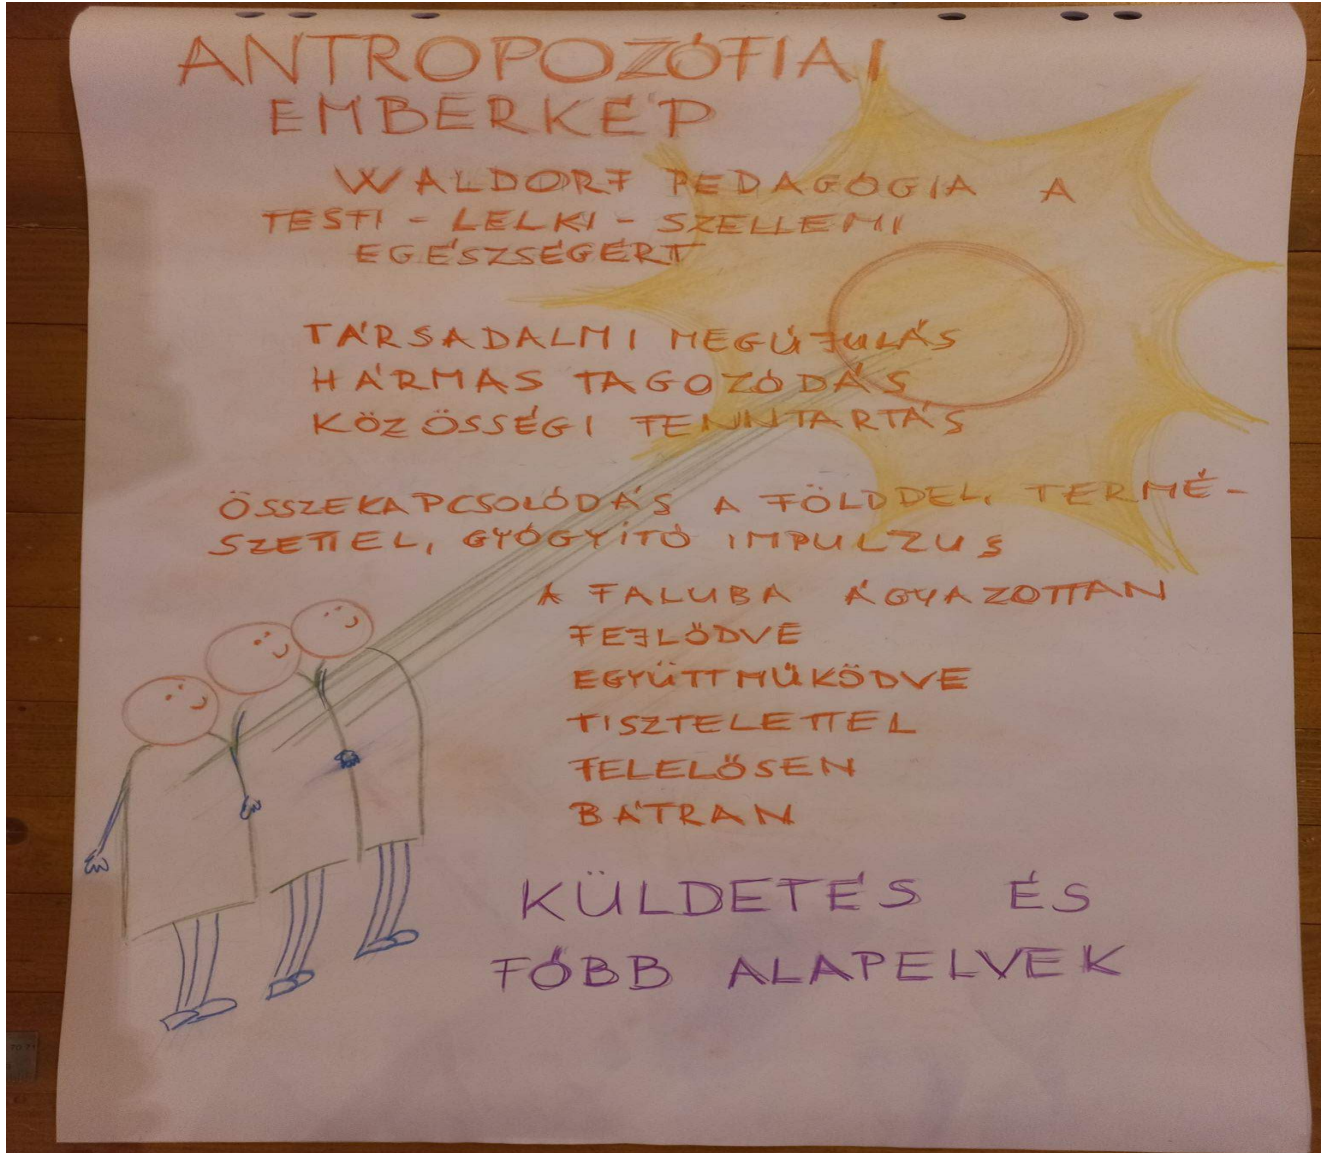 ANTROPOZÓFIAI
EMBERKÉP
WALDORF PEDAGÓGIA A
TESTI - LELKI - SZELLEMI
EGÉSZSÉGÉRT
TÁRSADALMI MEGÚJULÁS
HÁRMAS TAGOZÓDÁS
KÖZÖSSÉGI FENNTARTÁS
ÖSSZEKAPCSOLÓDÁS A FÖLDDEL, TERMÉ-
SZETTEL, GYÓGYÍTÓ IMPULZUS
A FALUBA ÁGYAZOTTAN
FEJLŐDVE
EGYÜTTMŰKÖDVE
TISZTELETTEL
FELELŐSEN
BÁTRAN
KÜLDETÉS ÉS
FŐBB ALAPELVEK